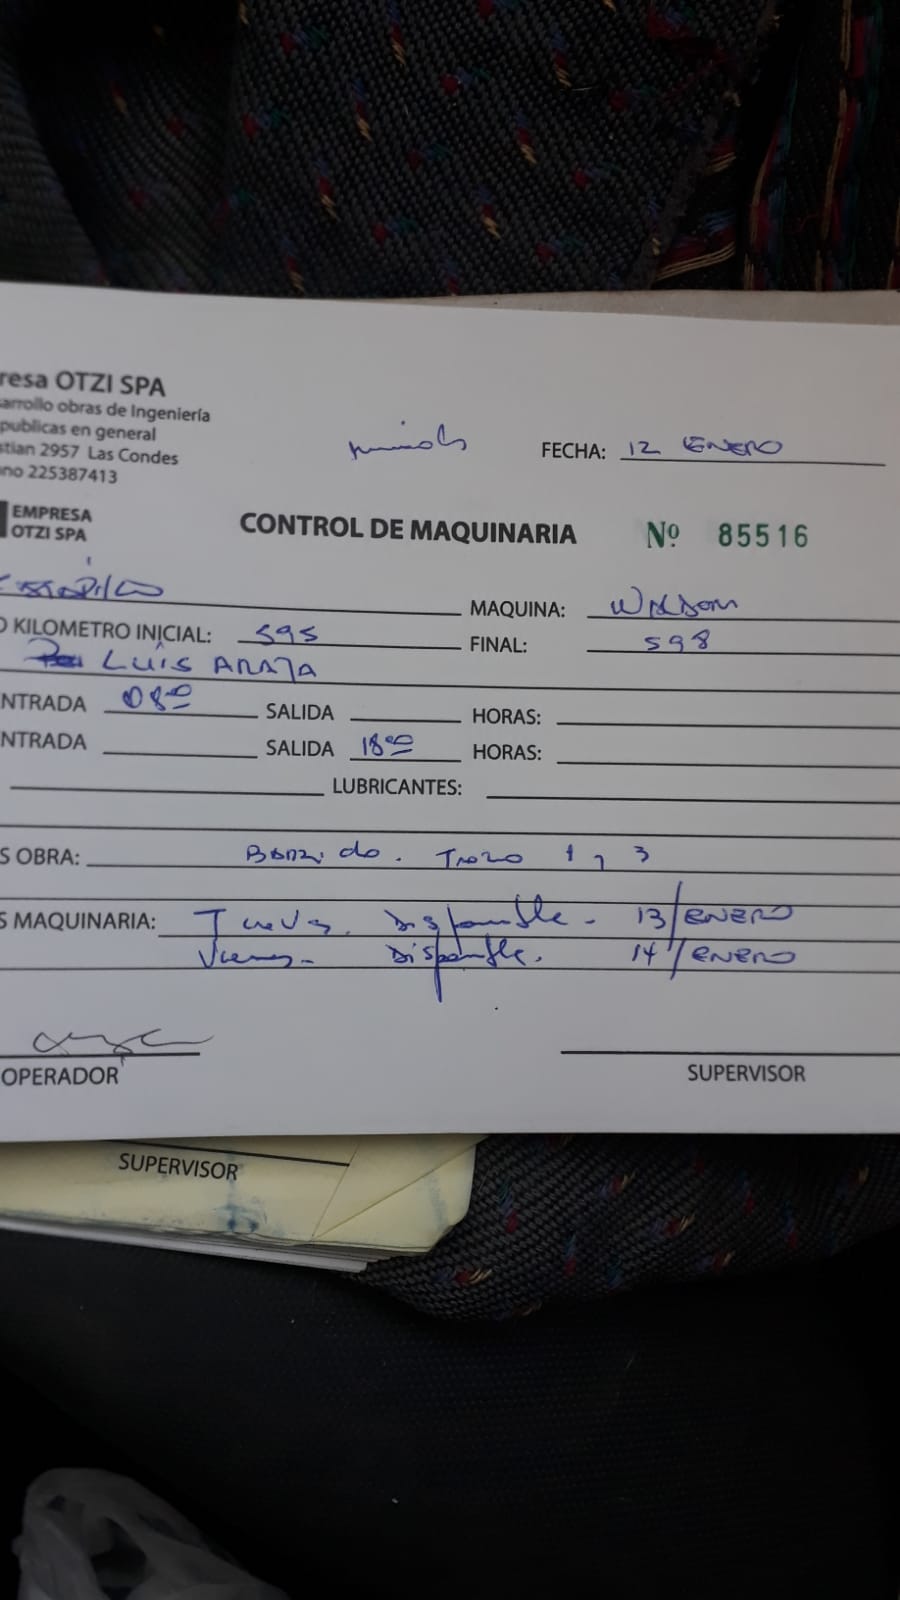 resa OTZI SPA
arrollo obras de Ingeniería
publicas en general
stian 2957 Las Condes
no 225387413
FECHA: 12 ENERO
EMPRESA
OTZI SPA
CONTROL DE MAQUINARIA Nº 85516
MAQUINA:
O KILOMETRO INICIAL: 595 FINAL: 598
LUIS ARAYA
NTRADA 08:00 SALIDA HORAS:
NTRADA SALIDA 18:00 HORAS:
LUBRICANTES:
S OBRA: Barrido. Tramo 1 y 3
S MAQUINARIA: Jueves. Disponible - 13/ENERO
Viernes - Disponible. 14/ENERO
OPERADOR SUPERVISOR
SUPERVISOR